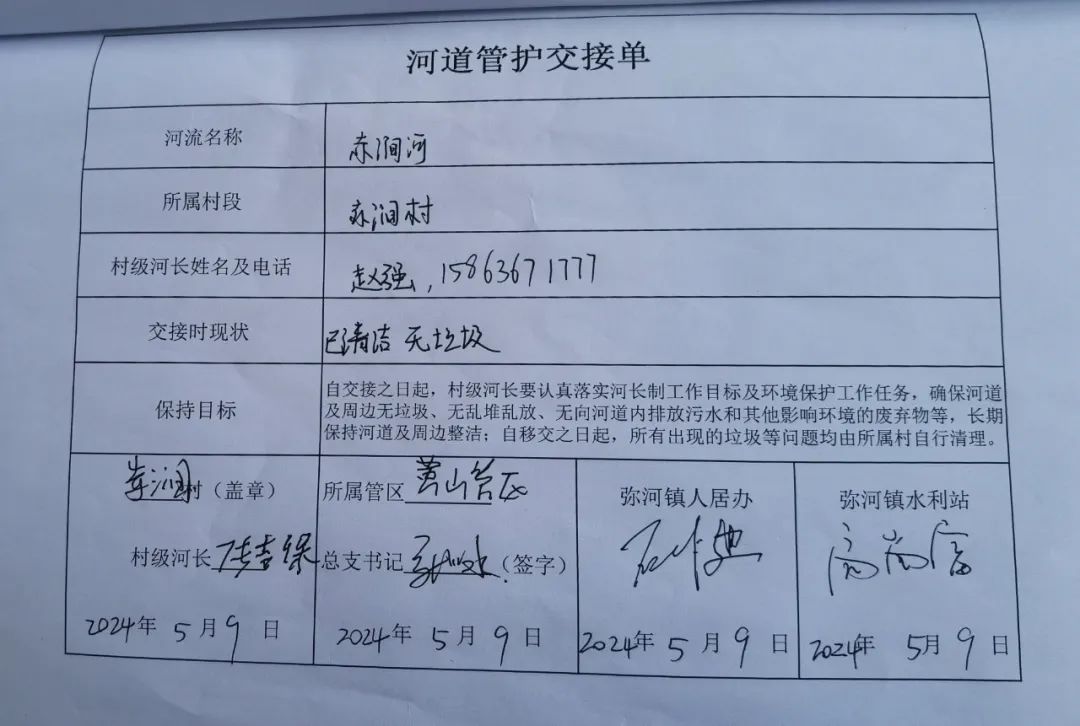 河道管护交接单
河流名称
赤涧河
所属村段
赤涧村
村级河长姓名及电话
赵强，15863671777
交接时现状
已清洁 无垃圾
保持目标
自交接之日起，村级河长要认真落实河长制工作目标及环境保护工作任务，确保河道
及周边无垃圾、无乱堆乱放、无向河道内排放污水和其他影响环境的废弃物等，长期
保持河道及周边整洁；自移交之日起，所有出现的垃圾等问题均由所属村自行清理。
村（盖章）
村级河长
2024年 5月9日
所属管区
总支书记（签字）
2024年 5月9日
弥河镇人居办
2024年 5月9日
弥河镇水利站
2024年 5月9日